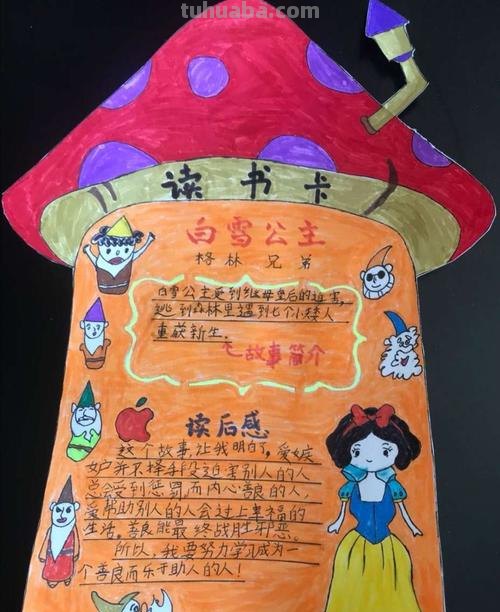 tuhuaba.com
读书卡
白雪公主
格林 兄弟
白雪公主受到继母皇后的迫害,
逃到森林里遇到七个小矮人
重获新生。
故事简介
读后感
这个故事让我明白了,爱嫉
妒并不择手段迫害别人的人
总会受到惩罚而内心善良的人,
爱帮助别人的人会过上幸福的
生活。善良能最终战胜邪恶。
所以,我要努力学习成为一
个善良而乐于助人的人!